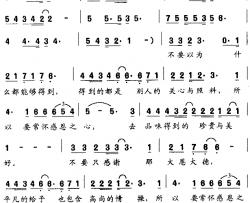 5 4 3 4 2 2 — | 5 5. 5 3 5. | 7 5 5 5 3 5.
4 4. 4 3 4. | 5 4 3 2 1 · — ) | 3 3 2 3 2 3 4
不要以为 什
2 1 7 1 7 6 | 4 4 3 4 6 6 6 7 1 | 1 7 1 7 1 2
么都能够得到， 得到的都是 别人的 关心与照料， 所
1 6 6 6 5 4 3 | 5 — 5. 3 | 4 4 3 4 3 4 3 2 1
以 要常怀感恩之 心， 去 品味得到的 珍贵与美
2. 1 | 3 3 2 3 2 3 4 | 2 1 7 1 7 6
好。 不要只感谢 那 大恩大德，
4 4 3 4 6 6. 6 7 1 | 1 7 1 7 1 2. 1 | 1 6 6 6 5 4 3
平凡的给予 也包含 高尚的情 操， 所以 要常怀感恩